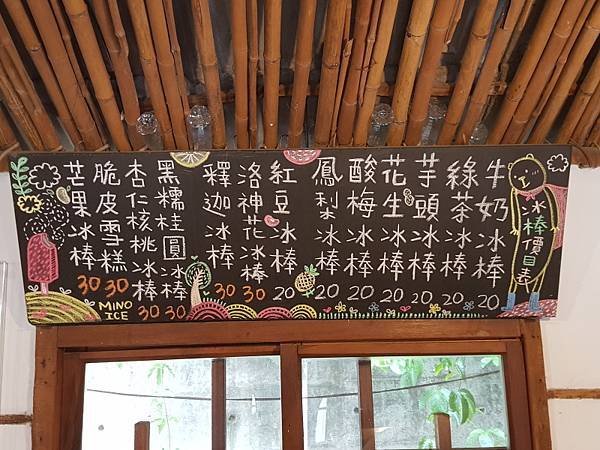 冰棒價目表
牛奶冰棒 20
綠茶冰棒 20
芋頭冰棒 20
花生冰棒 20
酸梅冰棒 20
鳳梨冰棒 20
紅豆冰棒 20
洛神花冰棒 30
釋迦冰棒 30
黑糯桂圓冰棒 30
杏仁核桃冰棒 30
脆皮雪糕 30
芒果冰棒 30
MINO
ICE